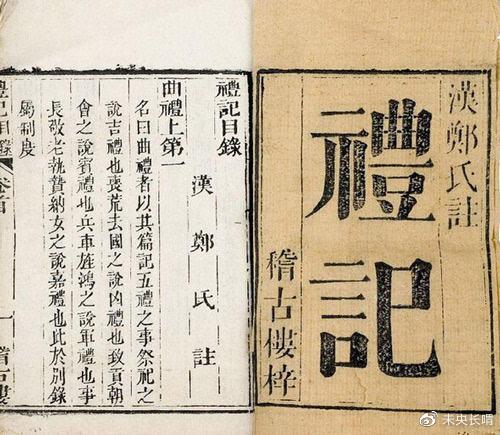 漢鄭氏註
禮記
稽古樓梓
禮記目錄
漢鄭氏註
曲禮上第一
名曰曲禮者以其篇記五禮之事祭祀之
說吉禮也喪荒去國之說凶禮也致貢朝
會之說賓禮也兵車旌鴻之說軍禮也事
長敬老執贄納女之說嘉禮也此於別錄
屬制度
禮記目錄 卷首 一 稽古樓
未央长喟